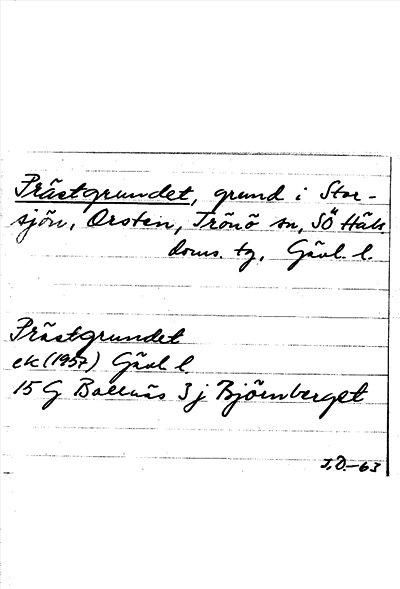 Prästgrundet, grund i Stor-
sjön, Orsten, Trönö sn, SÖ Häls.
doms. tg, Gävl. l.
Prästgrundet
ek (1957) Gävl l.
15 G Bollnäs 3 j Björnberget
J.Ö.-63